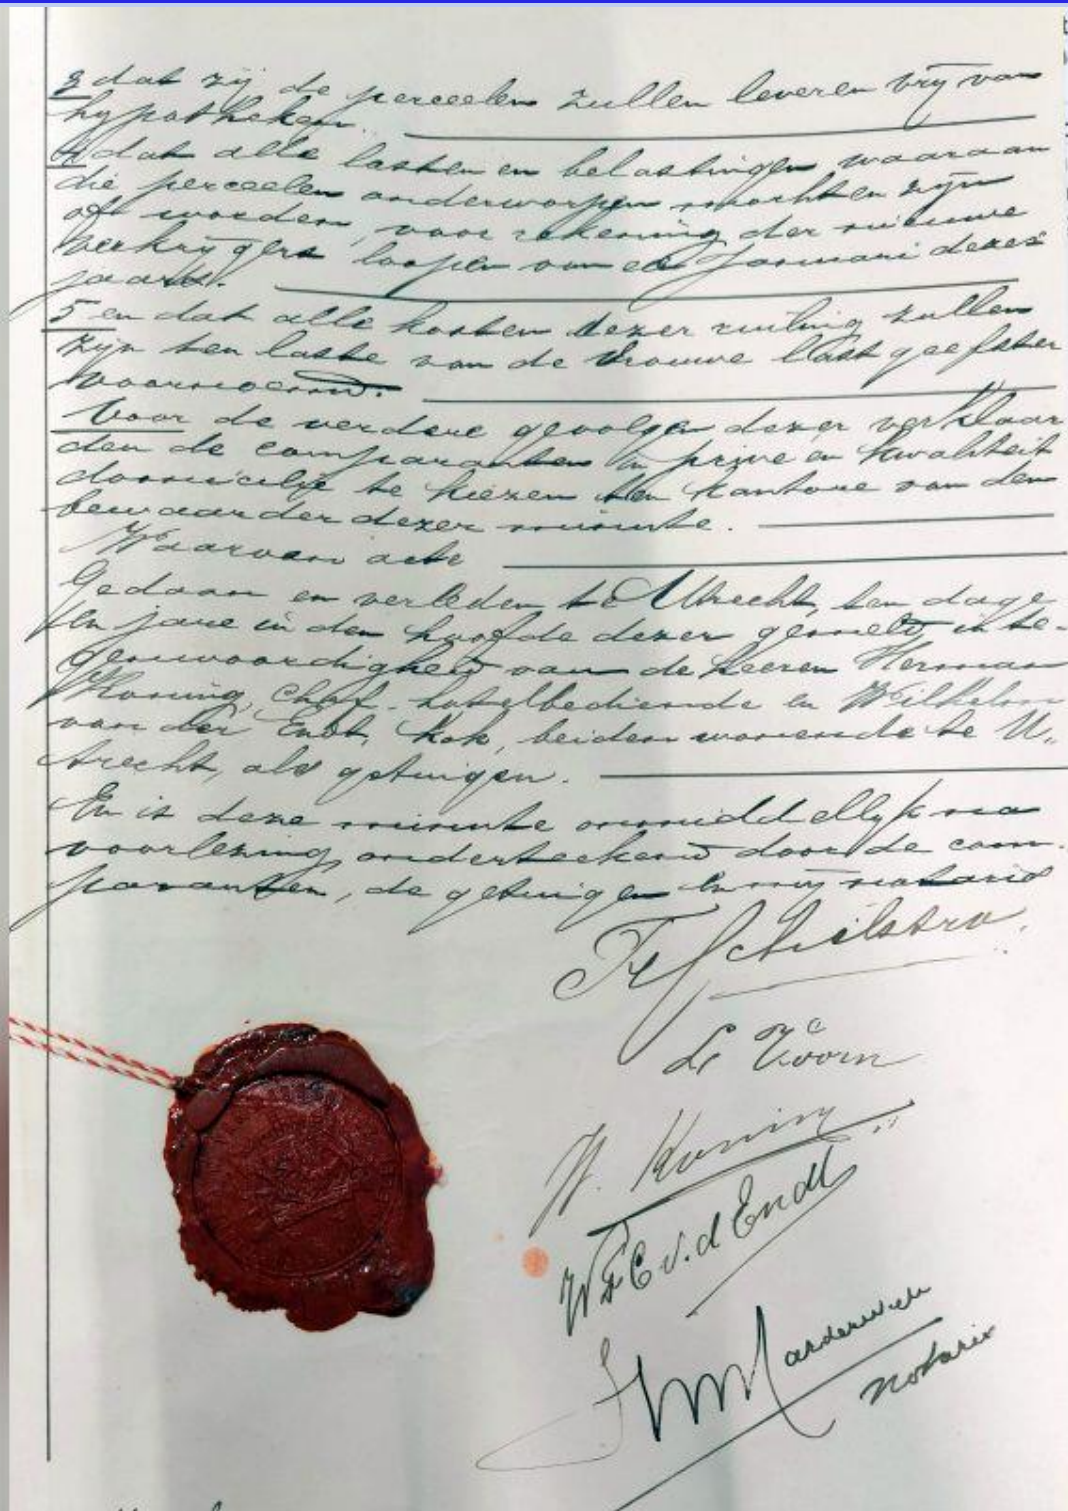 3 dat zij de perceelen zullen leveren vrij van
hypotheken.
4 dat alle lasten en belastingen, waaraan
die perceelen onderworpen mochten zijn
of worden, voor rekening der nieuwe
verkrijgers loopen van den Januari dezes
jaars.
5 en dat alle kosten dezer ruiling zullen
zijn ten laste van de Vrouwe lastgeefster
voornoemd.
Voor de verdere gevolgen dezer verklaar
den de comparanten in privé en kwaliteit
domicilie te kiezen ten kantore van den
bewaarder dezer minute.
Waarvan acte
Gedaan en verleden te Utrecht, ten dage
en jare in den hoofde dezer gemeld, in te-
genwoordigheid van de heeren Herman
Koning, chef-hotelbediende en Wilhelm
van der Endt, Kok, beiden wonende te U-
trecht, als getuigen.
En is deze minute onmiddellijk na
voorlezing, onderteekend door de com-
paranten, de getuigen en mij notaris
Schilstra.
Voorn
H. Koning
v.d Endt
notaris